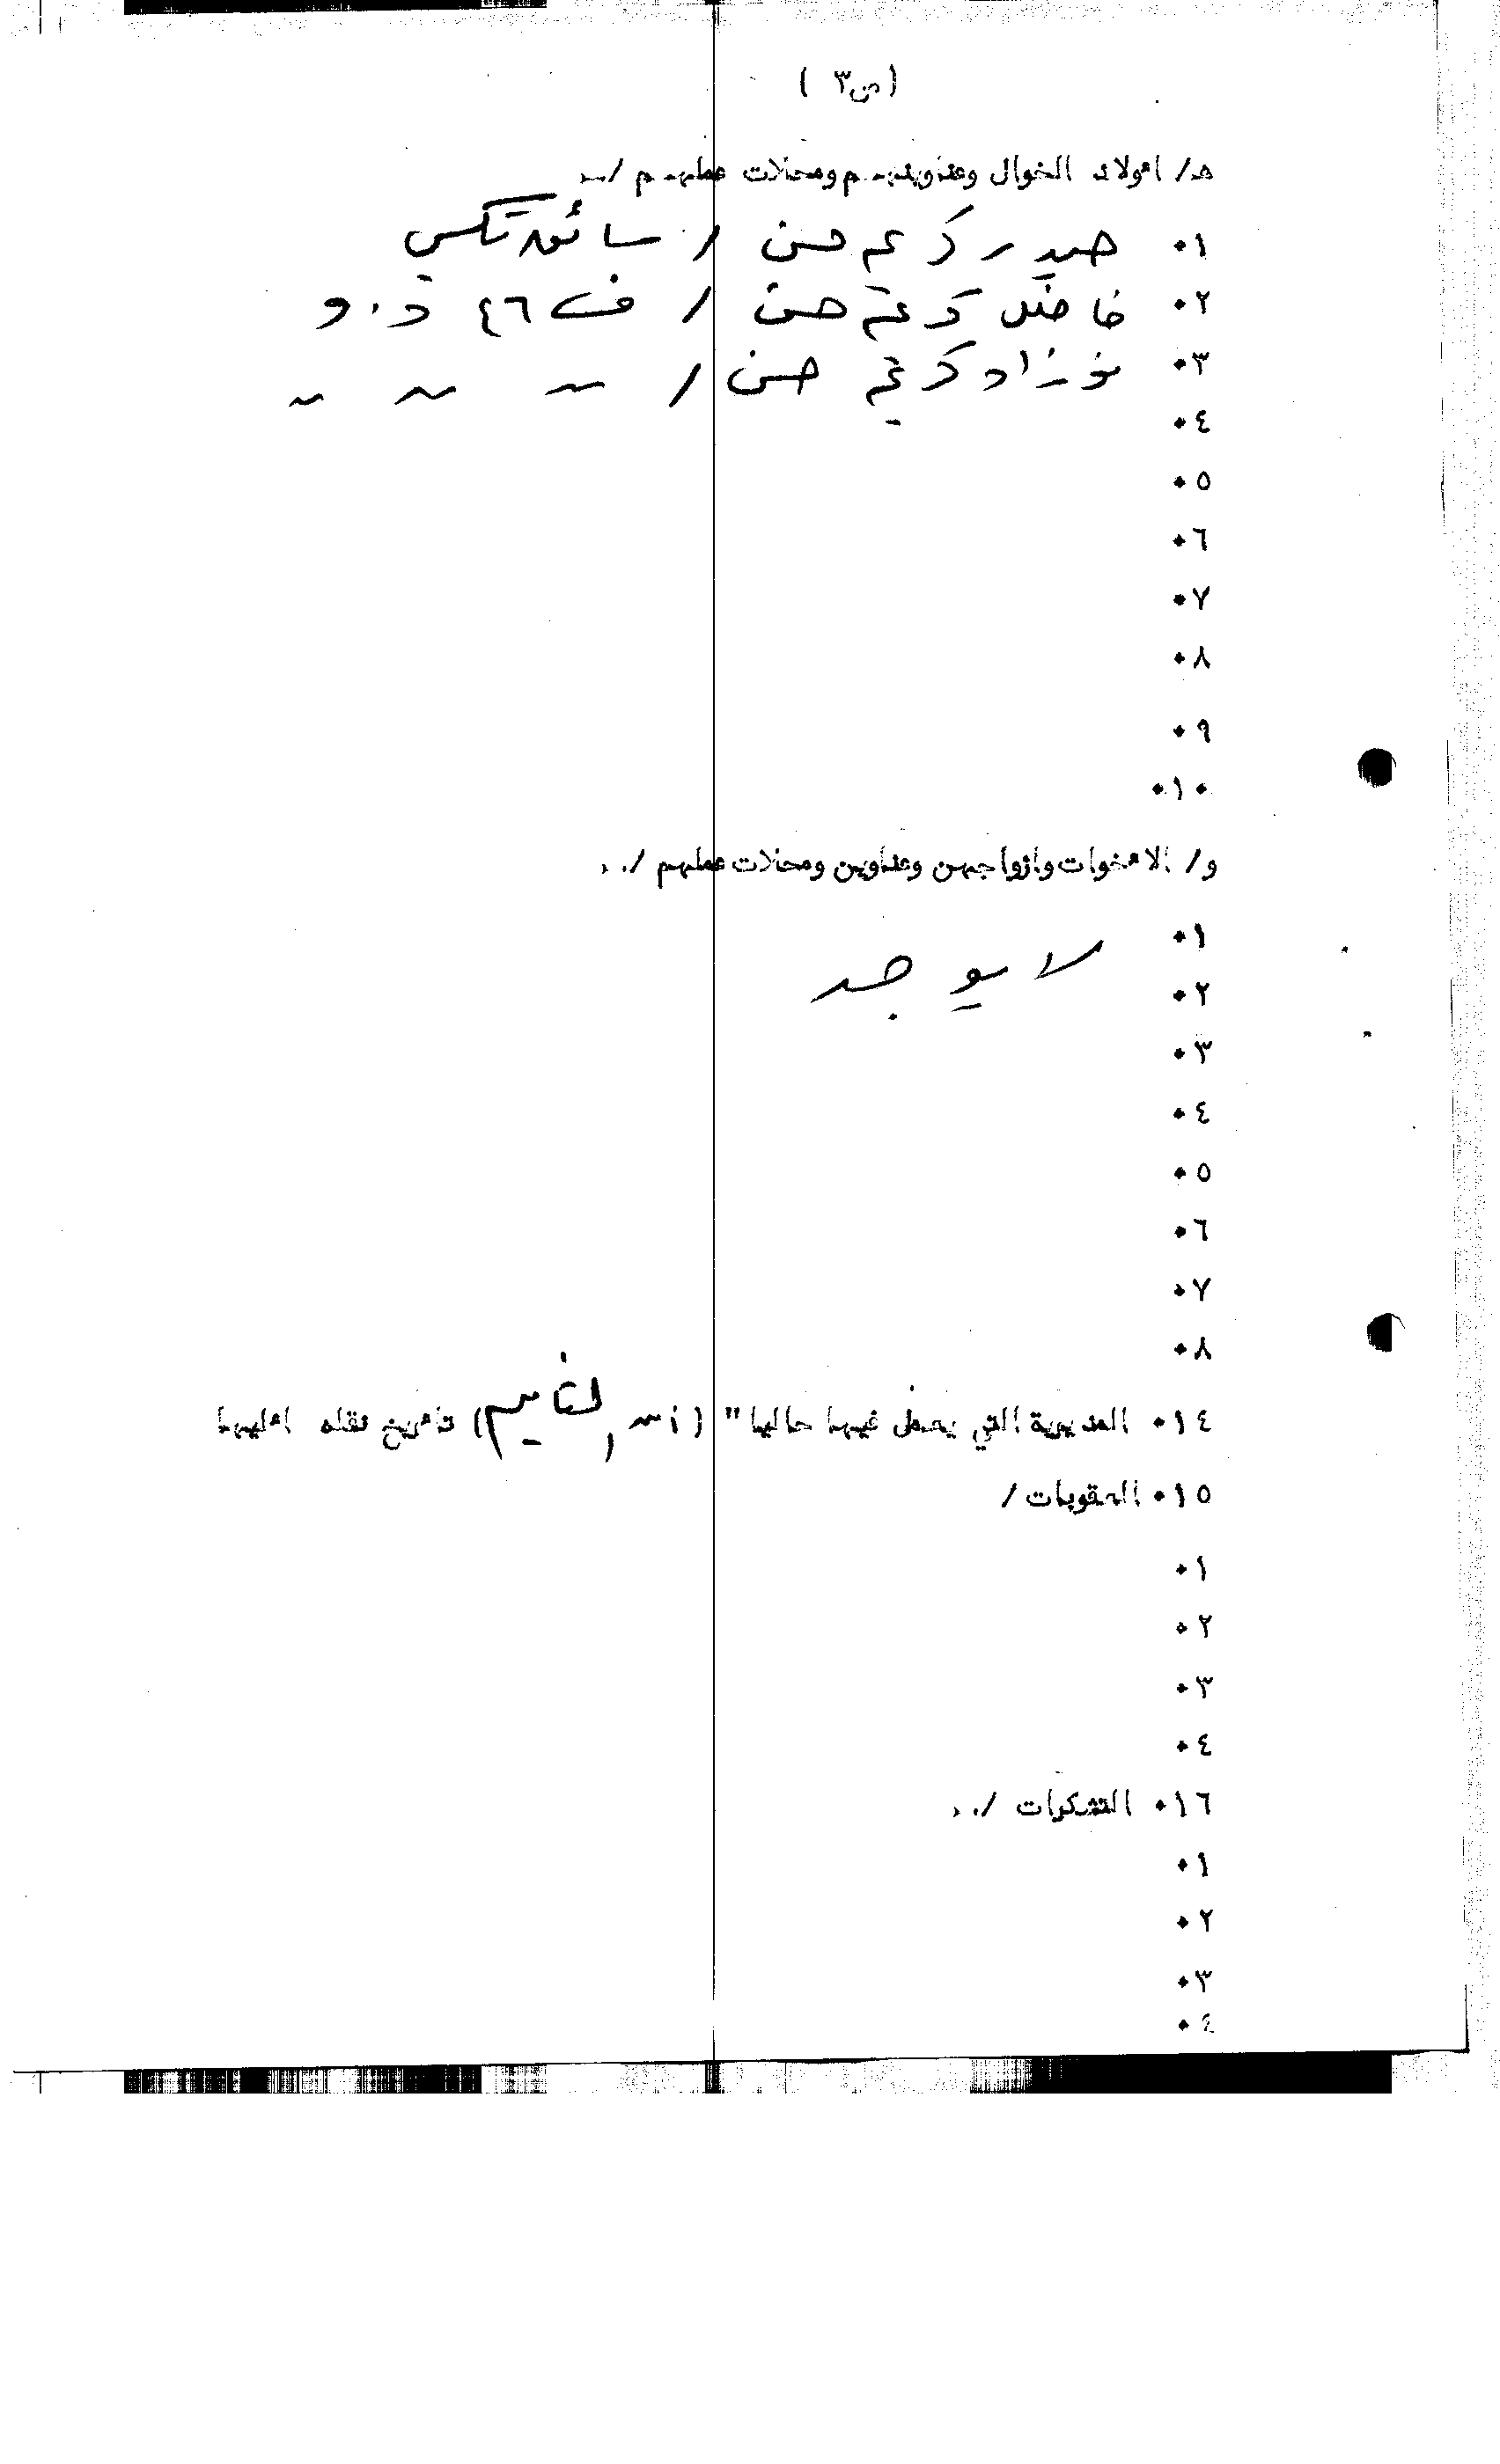 (ص٣ )
هـ/ اولاد الخوال وعناوينهم ومحلات عملهم /..
١. حيدر كريم حسن / سائق تكسي
٢. فاضل كريم حسن / ف ٤٦ د.و
٣. نوزاد كريم حسن / ~ ~ ~
٤.
٥.
٦.
٧.
٨.
٩.
١٠.
و/ الاخوات وازواجهن وعناوين ومحلات عملهم /..
١. لا يوجد
٢.
٣.
٤.
٥.
٦.
٧.
٨.
١٤. المديرية التي يعمل فيها حاليا" (امن التاميم) تاريخ نقله اليها
١٥. العقوبات /
١.
٢.
٣.
٤.
١٦. التشكرات /..
١.
٢.
٣.
٤.